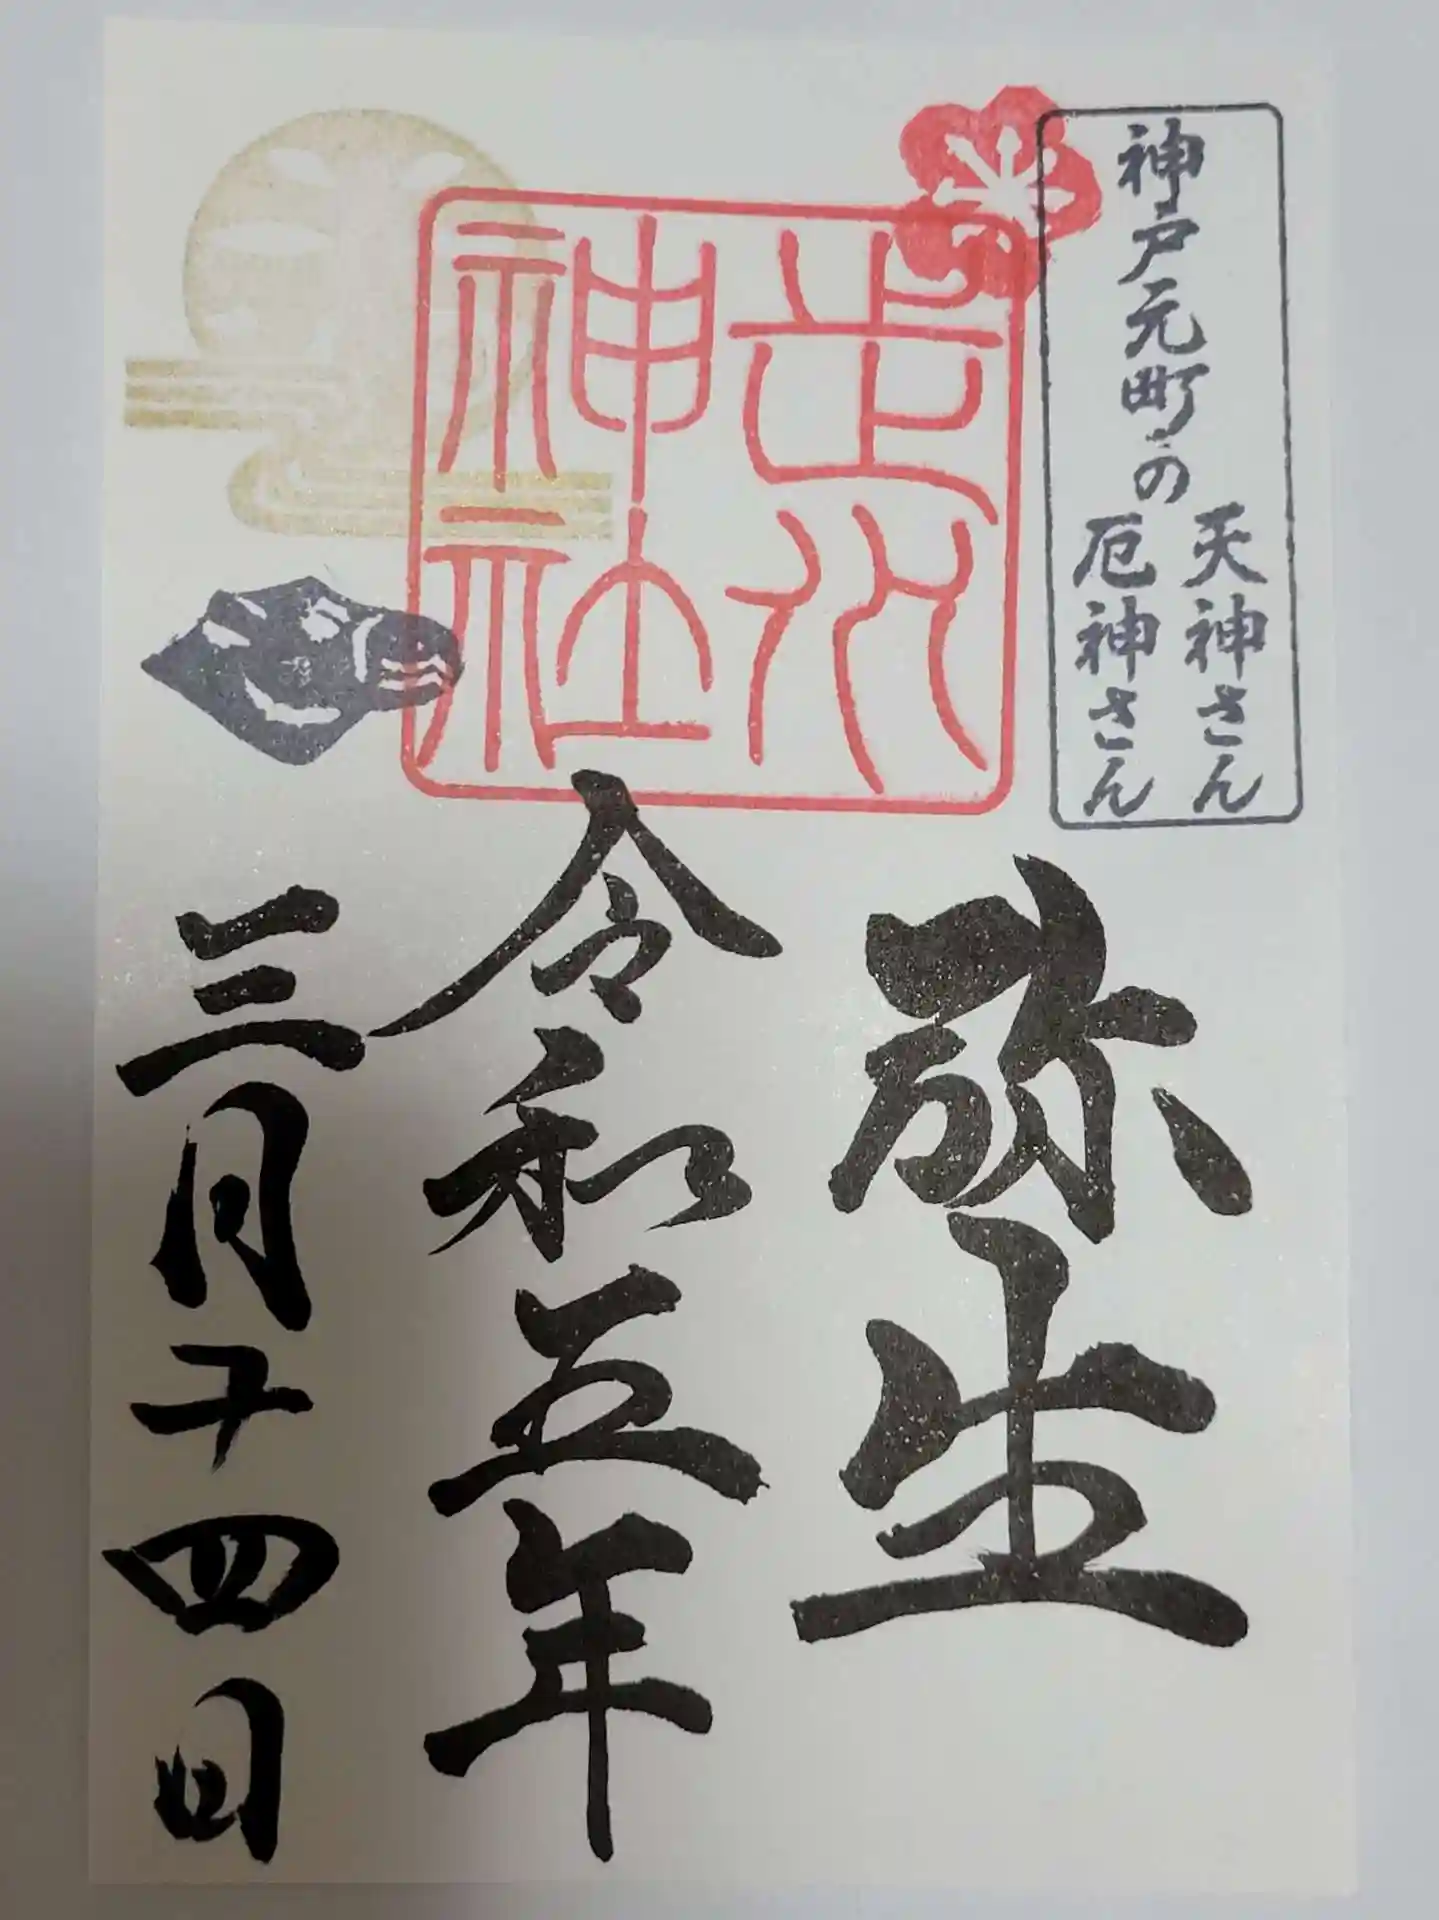 神戸元町の
天神さん
厄神さん
走水
神社
弥生
令和五年
三月十四日